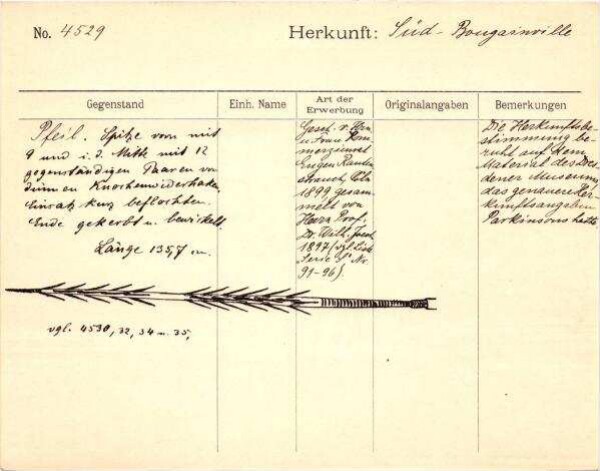 No. 4529
Herkunft: Süd-Bougainville
Gegenstand
Einh. Name
Art der Erwerbung
Originalangaben
Bemerkungen
Pfeil. Spitze vorn mit
9 und i. d. Mitte mit 12
gegenständigen Paaren von
dünnen Knochenwiederhaken,
Einsatz kurz beflochten.
Ende gekerbt u. bewickelt.
Länge 135,7 cm.
Gesch. v. Hrn
u. Frau Kom
merzienrat
Eugen Rauten
strauch, Cöln
1899 gesam
melt von
Herrn Prof.
Dr. Wilh. Joest
1897 (vgl. Liste
Nr.
91-96).
Die Herkunftsbe-
stimmung be-
ruht auf dem
Material des Dres
dener Museums,
das genauere Her-
kunftsangaben
Parkinsons hatte.
vgl. 4530, 32, 34 u. 35.